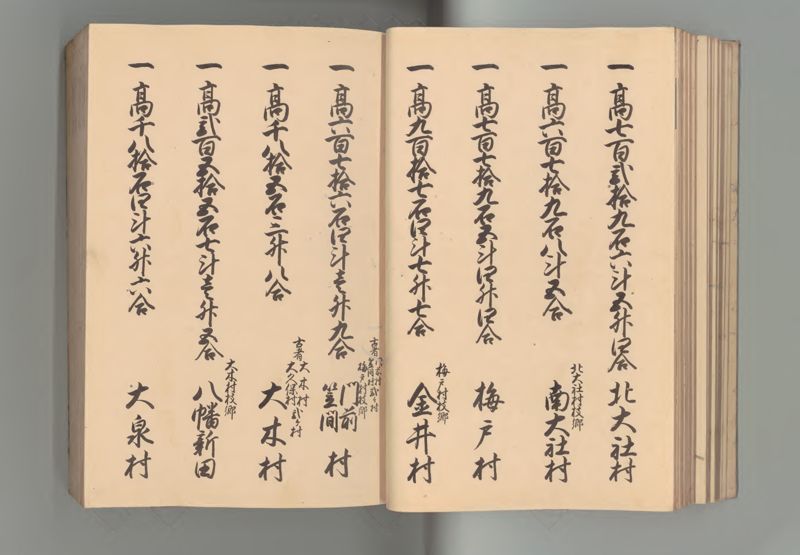 一高七百弐拾九石六斗五升四合 北大社村
北大社村枝郷
一高六百七拾九石八斗五合 南大社村
一高七百七拾九石五斗四升四合 梅戸村
梅戸村枝郷
一高九百拾七石四斗七升七合 金井村
古者門前村弐ヶ村
笠間村
梅戸村枝郷
一高六百七拾六石四斗壱升九合 門前笠間村
古者大木村弐ヶ村
大久保村
一高千八拾五石三升八合 大木村
大木村枝郷
一高弐百五拾五石七斗壱升五合 八幡新田
一高千八拾石四斗六升六合 大泉村